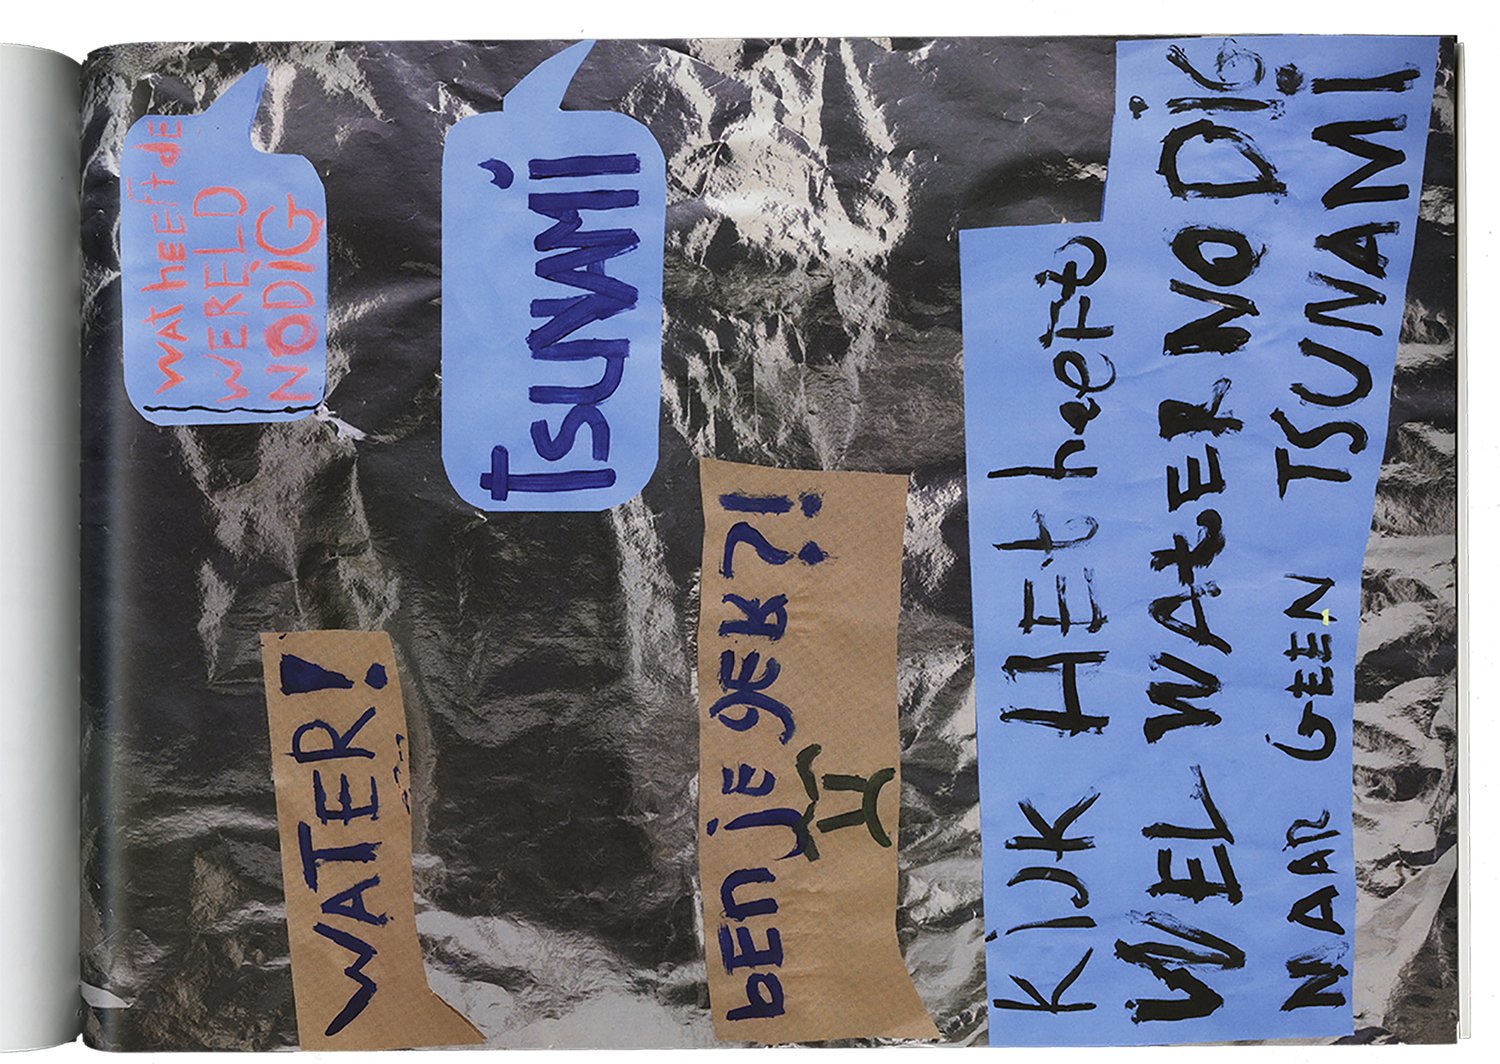 wat heeft de
WERELD
NODiG
WATER!
TSUNAMi
bEn jE gEK?!
KiJK HEt heeft
WEL WAtER NODiG
NAAR GEEN TSUNAMi